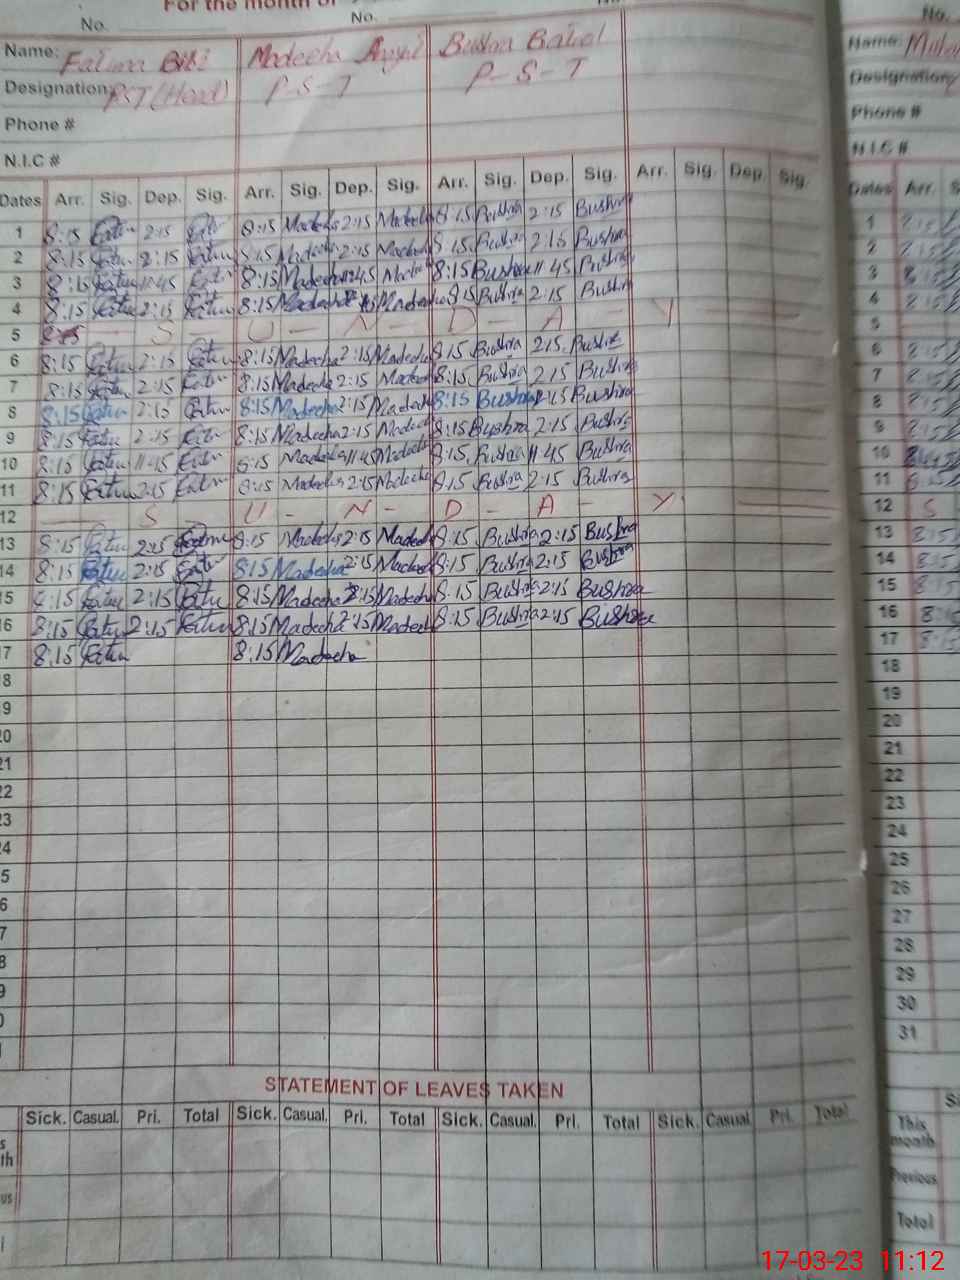 For the month of
No. No.
Name: Fatima Bibi Madeeha Bushra Batool
Designation: PST (Head) P-S-T P-S-T
Phone #
N.I.C #
Dates Arr. Sig. Dep. Sig. Arr. Sig. Dep. Sig. Arr. Sig. Dep. Sig. Arr. Sig. Dep. Sig.
1 8:15 Fatim 2:15 Fatim 8:15 Madeeha 2:15 Madeeha 8:15 Bushra 2:15 Bushra
2 8:15 Fatim 2:15 Fatim 8:15 Madeeha 2:15 Madeeha 8:15 Bushra 2:15 Bushra
3 8:15 Fatim 11:45 Fatim 8:15 Madeeha 11:45 Madeeha 8:15 Bushra 11:45 Bushra
4 8:15 Fatim 2:15 Fatim 8:15 Madeeha Madeeha 8:15 Bushra 2:15 Bushra
5 — S — U — N — D — A — Y
6 8:15 Fatim 2:15 Fatim 8:15 Madeeha 2:15 Madeeha 8:15 Bushra 2:15 Bushra
7 8:15 Fatim 2:15 Fatim 8:15 Madeeha 2:15 Madeeha 8:15 Bushra 2:15 Bushra
8 8:15 Fatim 2:15 Fatim 8:15 Madeeha 2:15 Madeeha 8:15 Bushra 2:15 Bushra
9 8:15 Fatim 2:15 Fatim 8:15 Madeeha 2:15 Madeeha 8:15 Bushra 2:15 Bushra
10 8:15 Fatim 11:45 Fatim 8:15 Madeeha 11:45 Madeeha 8:15 Bushra 11:45 Bushra
11 8:15 Fatim 2:15 Fatim 8:15 Madeeha 2:15 Madeeha 8:15 Bushra 2:15 Bushra
12 — S U - N - D - A - Y
13 8:15 Fatim 2:15 Fatim 8:15 Madeeha 2:15 Madeeha 8:15 Bushra 2:15 Bushra
14 8:15 Fatim 2:15 Fatim 8:15 Madeeha 2:15 Madeeha 8:15 Bushra 2:15 Bushra
15 8:15 Fatim 2:15 Fatim 8:15 Madeeha 2:15 Madeeha 8:15 Bushra 2:15 Bushra
16 8:15 Fatim 2:15 Fatim 8:15 Madeeha 2:15 Madeeha 8:15 Bushra 2:15 Bushra
17 8:15 Fatim 8:15 Madeeha
8
9
20
21
22
23
24
5
6
7
8
9
STATEMENT OF LEAVES TAKEN
Sick. Casual. Pri. Total Sick. Casual. Pri. Total Sick. Casual. Pri. Total Sick. Casual Pri. Total
th
us
No.
Name:
Designation
Phone #
N.I.C #
Dates Arr.
1
2
3 8:15
4 8:15
5
6 8:15
7 8:15
8 8:15
9 8:15
10
11 8:15
12 S
13 8:15
14 8:15
15 8:15
16 8:15
17 8:15
18
19
20
21
22
23
24
25
26
27
28
29
30
31
This month
Previous
Total
17-03-23 11:12